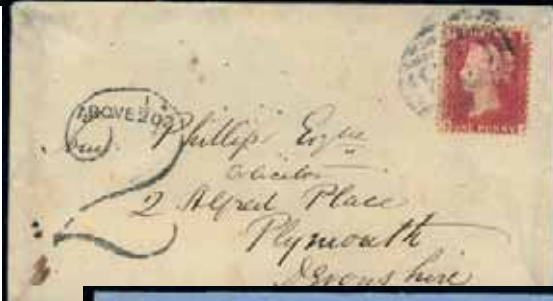 ABOVE 1 OZ
Phillips Esqre
Solicitor
2 Alfred Place
Plymouth
Devonshire
2
ONE PENNY